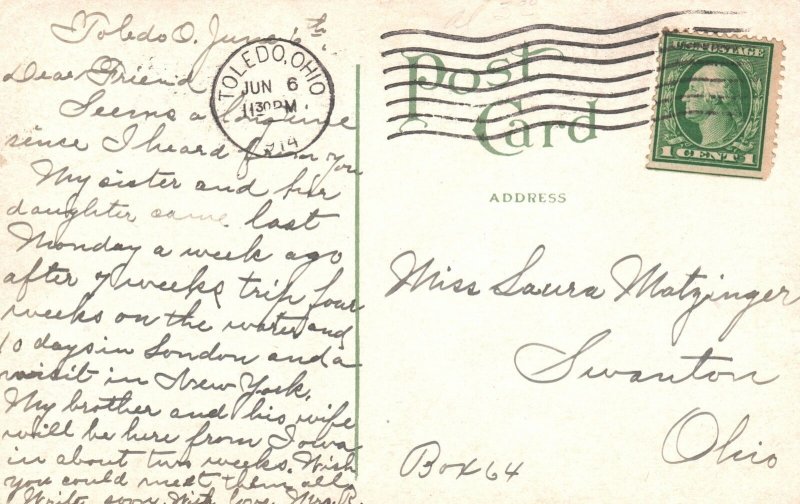 Toledo O. June 6th
Dear Friend
Seems a long time
since I heard from you
My sister and her
daughter came last
Monday a week ago
after 7 weeks trip four
weeks on the water and
10 days in London and a
visit in New York.
My brother and his wife
will be here from Iowa
in about two weeks. Wish
you could meet them all
Write soon. With love Mrs. R.
TOLEDO, OHIO
JUN 6
1130PM
1914
Post
Card
U.S. POSTAGE
1 CENT 1
ADDRESS
Miss Laura Matzinger
Swanton
Ohio
Box 64